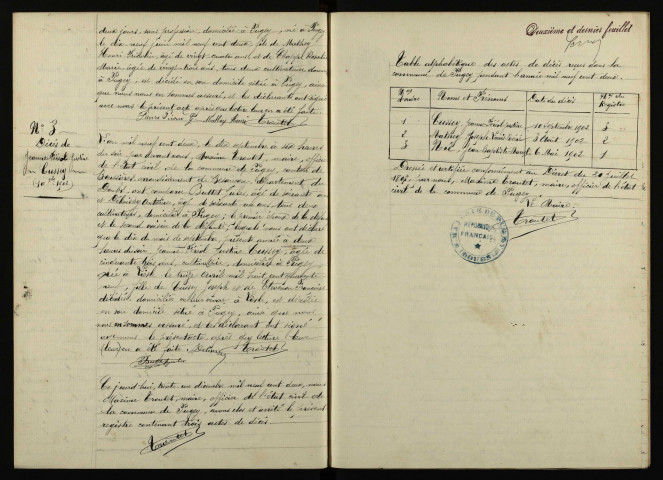 deux jours, sans profession, domicilié à Pugey, né à Pugey
le dix neuf juin mil neuf cent deux, fils de Mathey
Henri âgé de vingt quatre ans et de
Marie âgée de vingt trois ans, tous deux cultivateurs
à Pugey, est décédé en son domicile situé à Pugey, ainsi
que nous nous en sommes assuré, et les déclarants ont signé
avec nous le présent acte après que lecture leur en a été faite.
Mathey Henri Troutet
N° 3
Décès de
Jeanne Justine
Cussey
10 7bre 1902
L'an mil neuf cent deux, le dix septembre à six heures
du soir, par devant nous, Maxime Troutet, maire, officier
de l'état civil de la commune de Pugey, canton de
Boussières, arrondissement de Besançon, département du
Doubs, ont comparu Jules, âgé de soixante
et âgé de ans, tous deux
cultivateurs, domiciliés à Pugey, le premier
et le second voisin de la défunte, lesquels nous ont déclaré
que le dix du mois de septembre, présente année à deux
heures du soir, Jeanne Justine Cussey, âgée de
cinquante trois ans, cultivatrice, domiciliée à Pugey,
née à le treize avril mil huit cent quarante
neuf, fille de Cussey Joseph et de Françoise
décédés, domiciliés à est décédée
en son domicile situé à Pugey, ainsi que nous
nous en sommes assuré, et les déclarants ont signé
avec nous le présent acte après que lecture leur
en a été faite. Troutet
Ce jourd'hui, trente un décembre mil neuf cent deux, nous
Maxime Troutet, maire, officier de l'état civil de
la commune de Pugey, avons clos et arrêté le présent
registre contenant trois actes de décès.
Troutet
Deuxième et dernier feuillet
Table alphabétique des actes de décès reçus dans la
commune de Pugey pendant l'année mil neuf cent deux.
Nos d'ordre Noms et Prénoms Date du décès Nos du Registre
1 Cussey Jeanne Justine 10 Septembre 1902 3
2 Mathey 3 Août 1902 2
3 Jean Baptiste 6 Mai 1902 1
Dressée et certifiée conformément au Décret du 20 juillet
1807, par nous, Maxime Troutet, maire, officier de l'état
civil de la commune de Pugey.
Le Maire
Troutet
MAIRIE DE PUGEY
RÉPUBLIQUE
FRANÇAISE
(DOUBS)